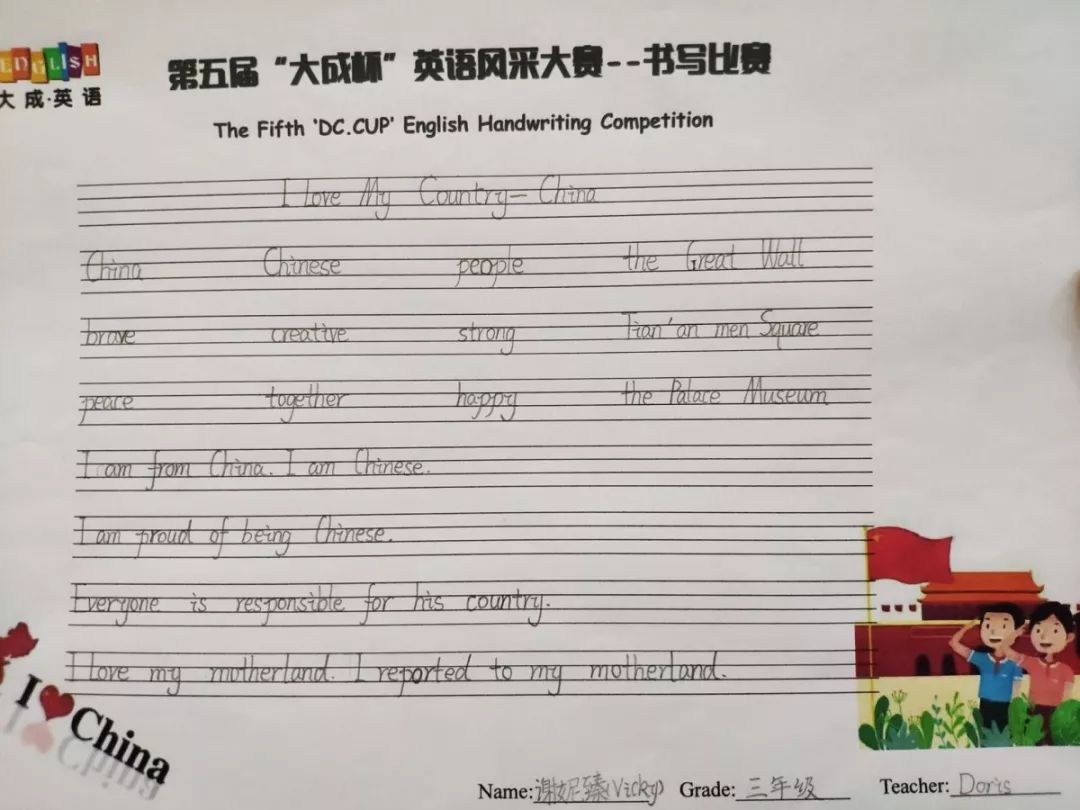 ENGLISH
大成·英语
第五届“大成杯”英语风采大赛--书写比赛
The Fifth ‘DC.CUP’ English Handwriting Competition
I Love My Country — China
China Chinese people the Great Wall
brave creative strong Tian'an men Square
peace together happy the Palace Museum
I am from China. I am Chinese.
I am proud of being Chinese.
Everyone is responsible for his country.
I love my motherland. I reported to my motherland.
I China
Name: 谢妮臻(Vicky) Grade: 三年级 Teacher: Doris